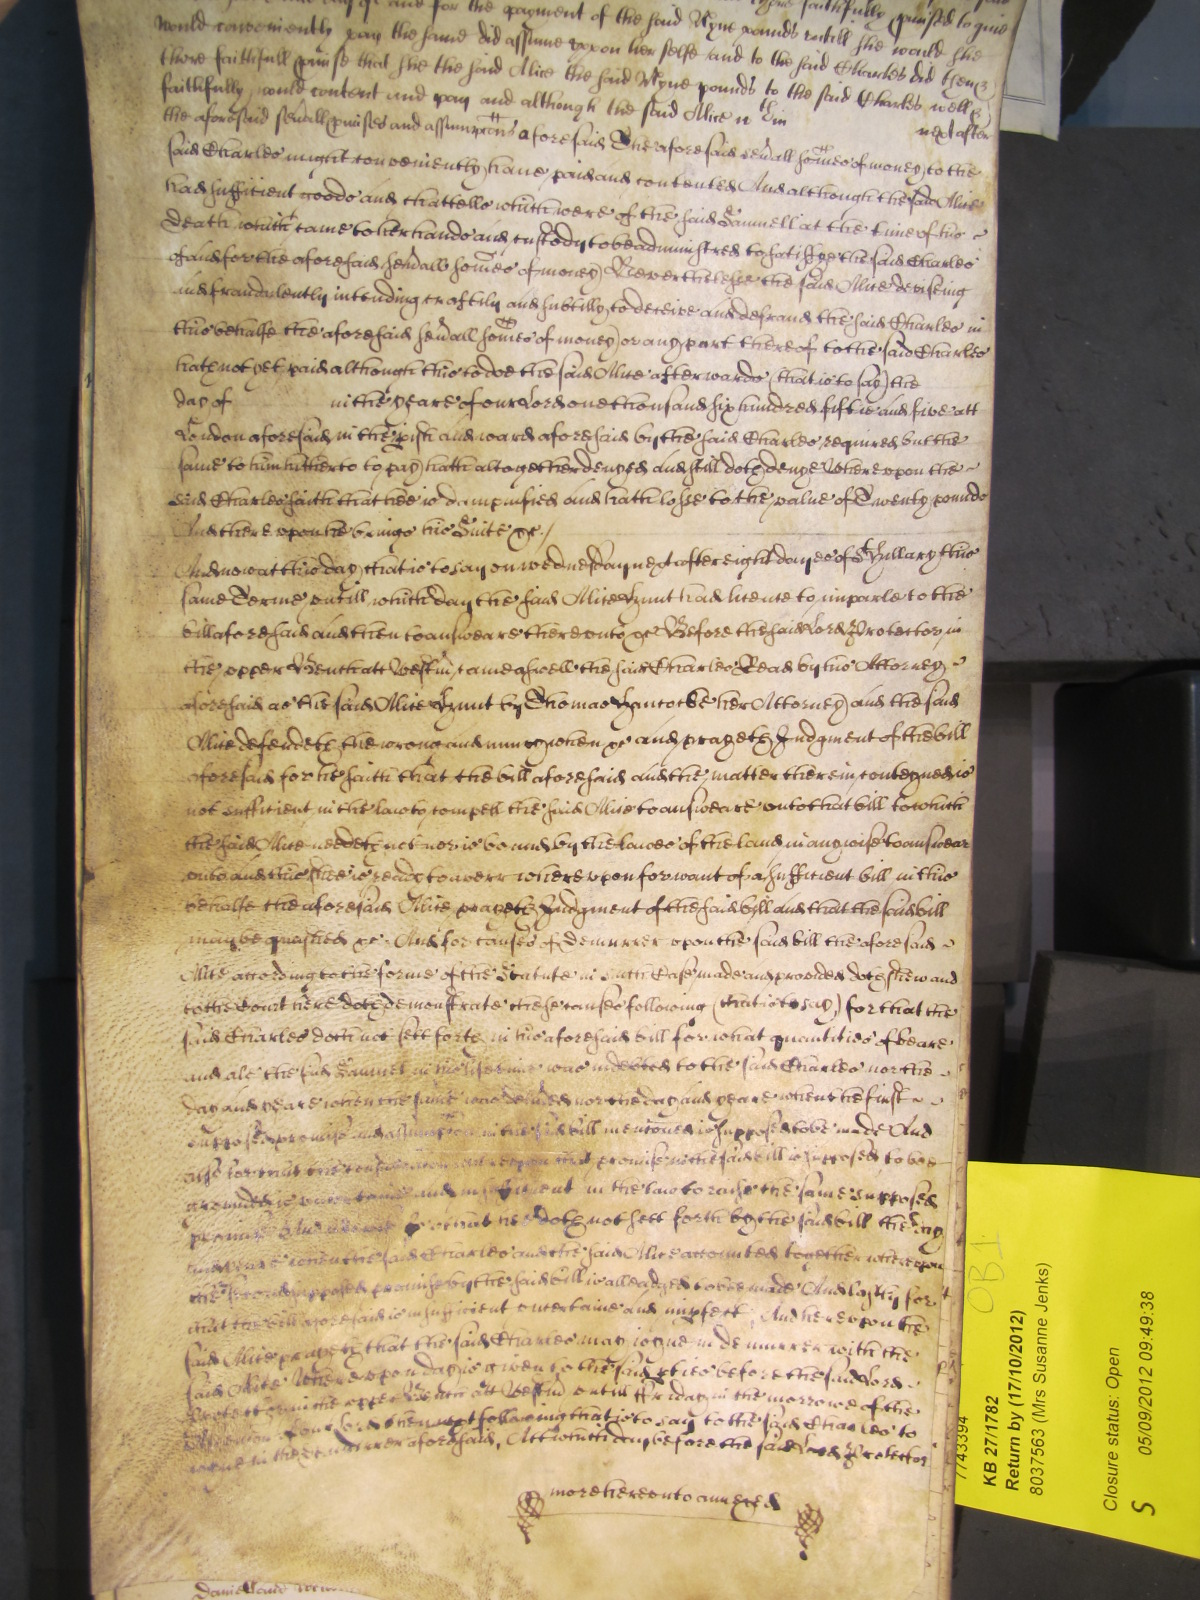 and for the payment of the said Nyne pounds untill she would she
would conveniently pay the same did assume uppon her selfe and to the said Charles did then &
there faithfull promise that she the said Alice the said Nyne pounds to the said Charles well &
faithfully would content and pay and although the said Alice next after
the aforesaid sevall promises and assumpcons aforesaid The aforesaid sevall somes of money to the
said Charles might conveniently have paid and contented And although the said Alice
had sufficient goods and chattells which were of the said Samuell at the time of his
death which came to her hands and custody to be administred to satisfye the said Charles
of and for the aforesaid sevall somes of money Neverthelesse the said Alice deviseing
and fraudulently intending craftily and subtilly to deceive and defraud the said Charles in
this behalfe the aforesaid sevall somes of money or any part thereof to the said Charles
hath not yet paid although this to doe the said Alice afterwards (that is to say) the
day of in the yeare of our Lord one thousand six hundred fiftie and five att
London aforesaid in the pish and ward aforesaid by the said Charles required but the
same to him hitherto to pay hath altogether denyed and still doth denye Whereupon the
said Charles saith that hee is dampnified and hath losse to the value of Twenty pounds
And thereupon he brings his Suite &c /
And now at this day that is to say on wednesday next after eight dayes of St Hillary this
same Terme, untill which day the said Alice Hunt had licence to imparle to the
bill aforesaid and then to answeare thereunto &c Before the said Lord Protector in
the upper Bench att Westm came aswell the said Charles Read by his Attorney
aforesaid as the said Alice Hunt by Thomas Hancocke her Attorney and the said
Alice defendeth the wrong and iniury when &c and prayeth Judgment of the bill
aforesaid for he saith that the bill aforesaid and the matter therein conteyned is
not sufficient in the law to compell the said Alice to answeare unto that bill to which
the said Alice needeth not nor is bound by the lawes of the land in any wise to answear
unto and this shee is ready to averr whereupon for want of a sufficient bill in this
behalfe the aforesaid Alice prayeth Judgment of the said bill and that the said bill
may be quashed &c. And for causes of demurrer upon the said bill the aforesaid
Alice according to the forme of the Statute in such Case made and provided doth shew and
to the Court here doth demonstrate these causes following (that is to say) for that the
said Charles doth not sett forth in his aforesaid bill for what quantities of beare
and ale the said Samuel in his lifetime was indebted to the said Charles nor the
day and yeare when the same was delived nor the day and yeare when the first
supposed promise and assumpcon in the said bill mentoned is supposed to be made And
also for that the consideracon whereupon that promise in the said bill is supposed to bee
grounded is uncertaine and insufficient in the law to raise the same supposed
promise And for that hee doth not sett forth by the said bill the day
and yeare when the said Charles and the said Alice accounted together whereupon
the second supposed promise by the said bill is alleadged to bee made And lastly for
that the bill aforesaid is insufficient uncertaine and impfect, And hereupon the
said Alice prayeth that the said Charles may ioyne in demurrer with the
said Alice Whereupon day is given to the said pties before the said Lord
Protector in the upper Bench att Westm untill Fryday in the morrowe of the
Ascension of our Lord then next following that is to say to the said Charles to
ioyne in the demurrer aforesaid, Att which day before the said Lord Protector
more hereonto annexed
7743394
OB 1
KB 27/1782
Return by (17/10/2012)
8037563 (Mrs Susanne Jenks)
Closure status: Open
S 05/09/2012 09:49:38